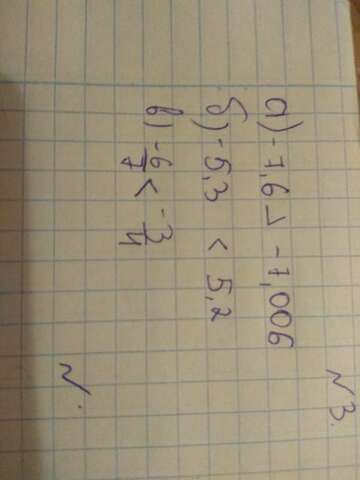 N 3.
а) -1,6 < -1,006
б) -5,3 < 5,2
в) -6/7 < -3/4
N.